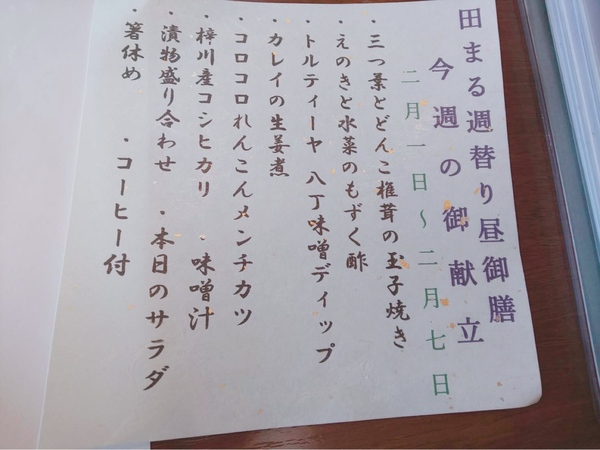 田まる週替り昼御膳
今週の御献立
二月一日～二月七日
・三つ葉とどんこ椎茸の玉子焼き
・えのきと水菜のもずく酢
・トルティーヤ 八丁味噌ディップ
・カレイの生姜煮
・コロコロれんこんメンチカツ
・梓川産コシヒカリ ・味噌汁
・漬物盛り合わせ ・本日のサラダ
・箸休め ・コーヒー付